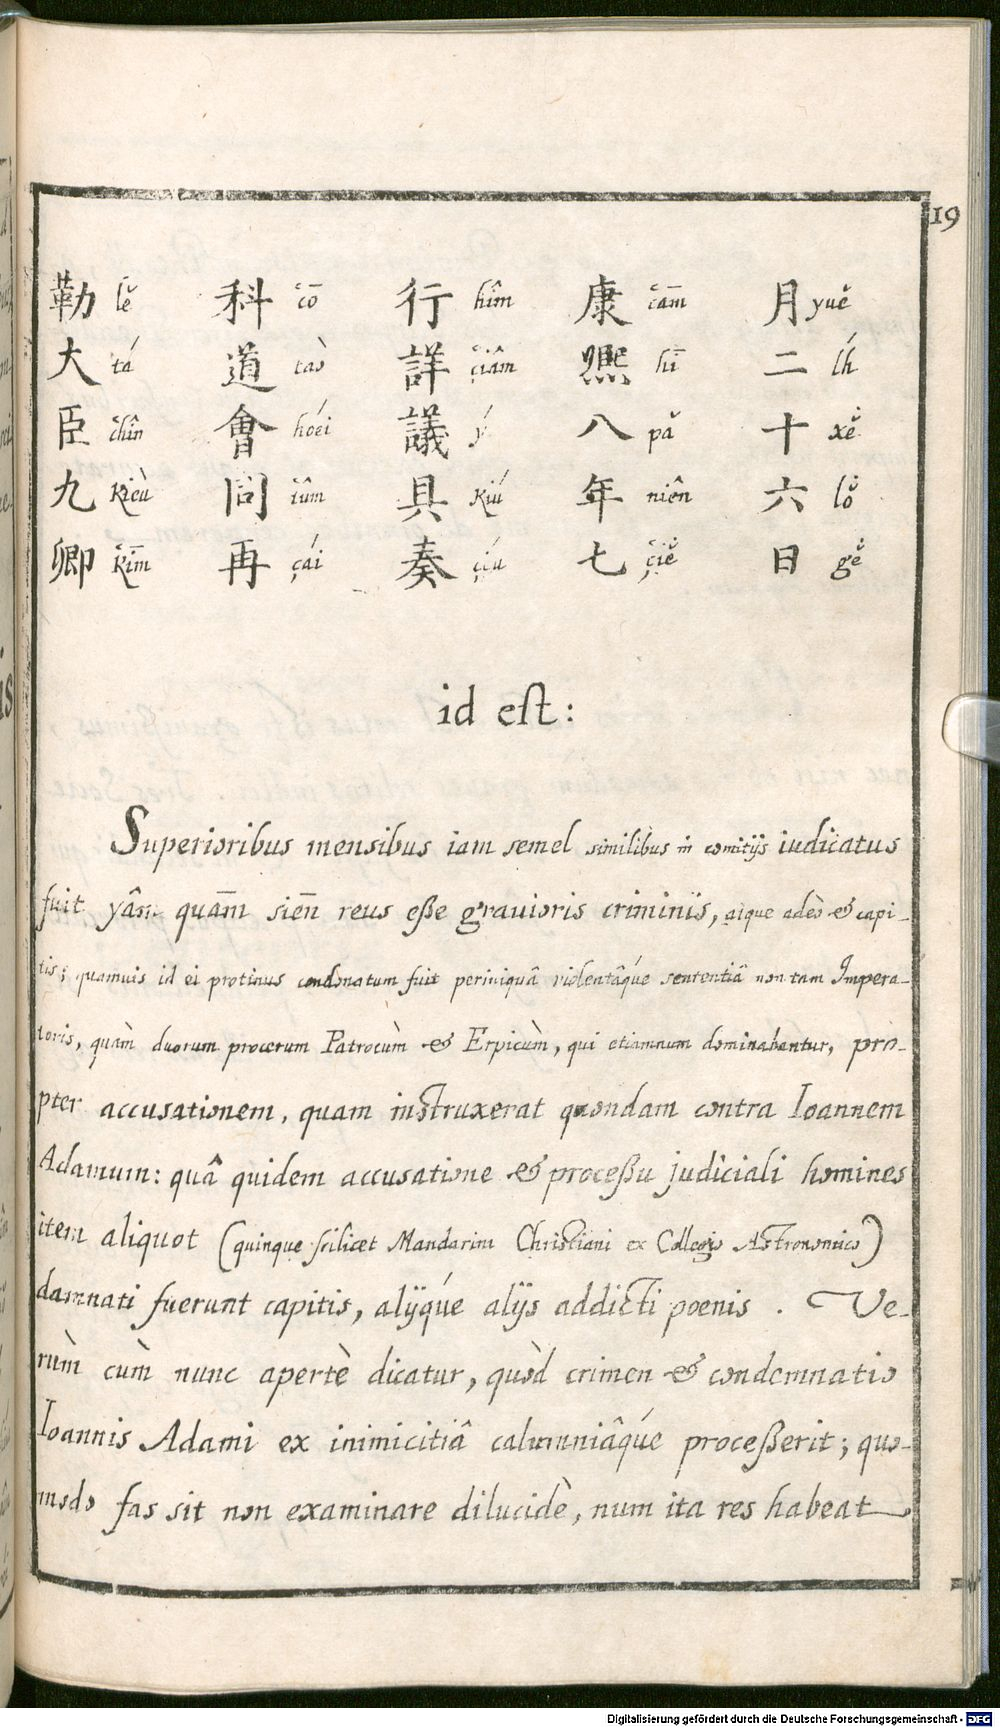 19
勒 lĕ 大 tá 臣 chîn 九 kieù 卿 kīm
科 cō 道 taò 會 hoéi 同 tûm 再 çái
行 hîm 詳 çiâm 議 ý 具 kiú 奏 çéu
康 cām 熙 hī 八 pă 年 niên 七 çiĕ
月 yuĕ 二 lh́ 十 xĕ 六 lŏ 日 gĕ
id est:
Superioribus mensibus iam semel similibus in comitijs iudicatus
fuit yâm quām siēn reus eße grauioris criminis, atque adeò & capi-
tis; quamuis id ei protinus condonatum fuit periniquâ violentâqúe sententiâ non tam Impera-
toris, quàm duorum procerum Patrocùm & Erpicùm, qui etiamnum dominabantur, pro-
pter accusationem, quam instruxerat quondam contra Ioannem
Adamum: quâ quidem accusatione & proceßu judiciali homines
item aliquot (quinque scilicet Mandarini Christiani ex Collegio Astronomico)
damnati fuerunt capitis, alijqúe alijs addicti poenis. Ve-
rùm cùm nunc apertè dicatur, quòd crimen & condemnatio
Ioannis Adami ex inimicitiâ calumniâqúe proceßerit; quo-
modo fas sit non examinare dilucidè, num ita res habeat
Digitalisierung gefördert durch die Deutsche Forschungsgemeinschaft - DFG